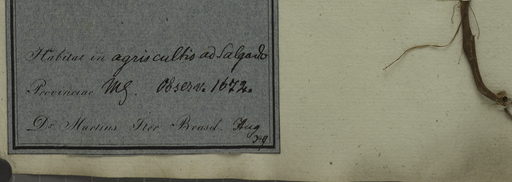 Habitat in agris cultis ad Salgado
Provinciae MG. Observ. 1672.
Dr. Martius Iter Brasil. Aug